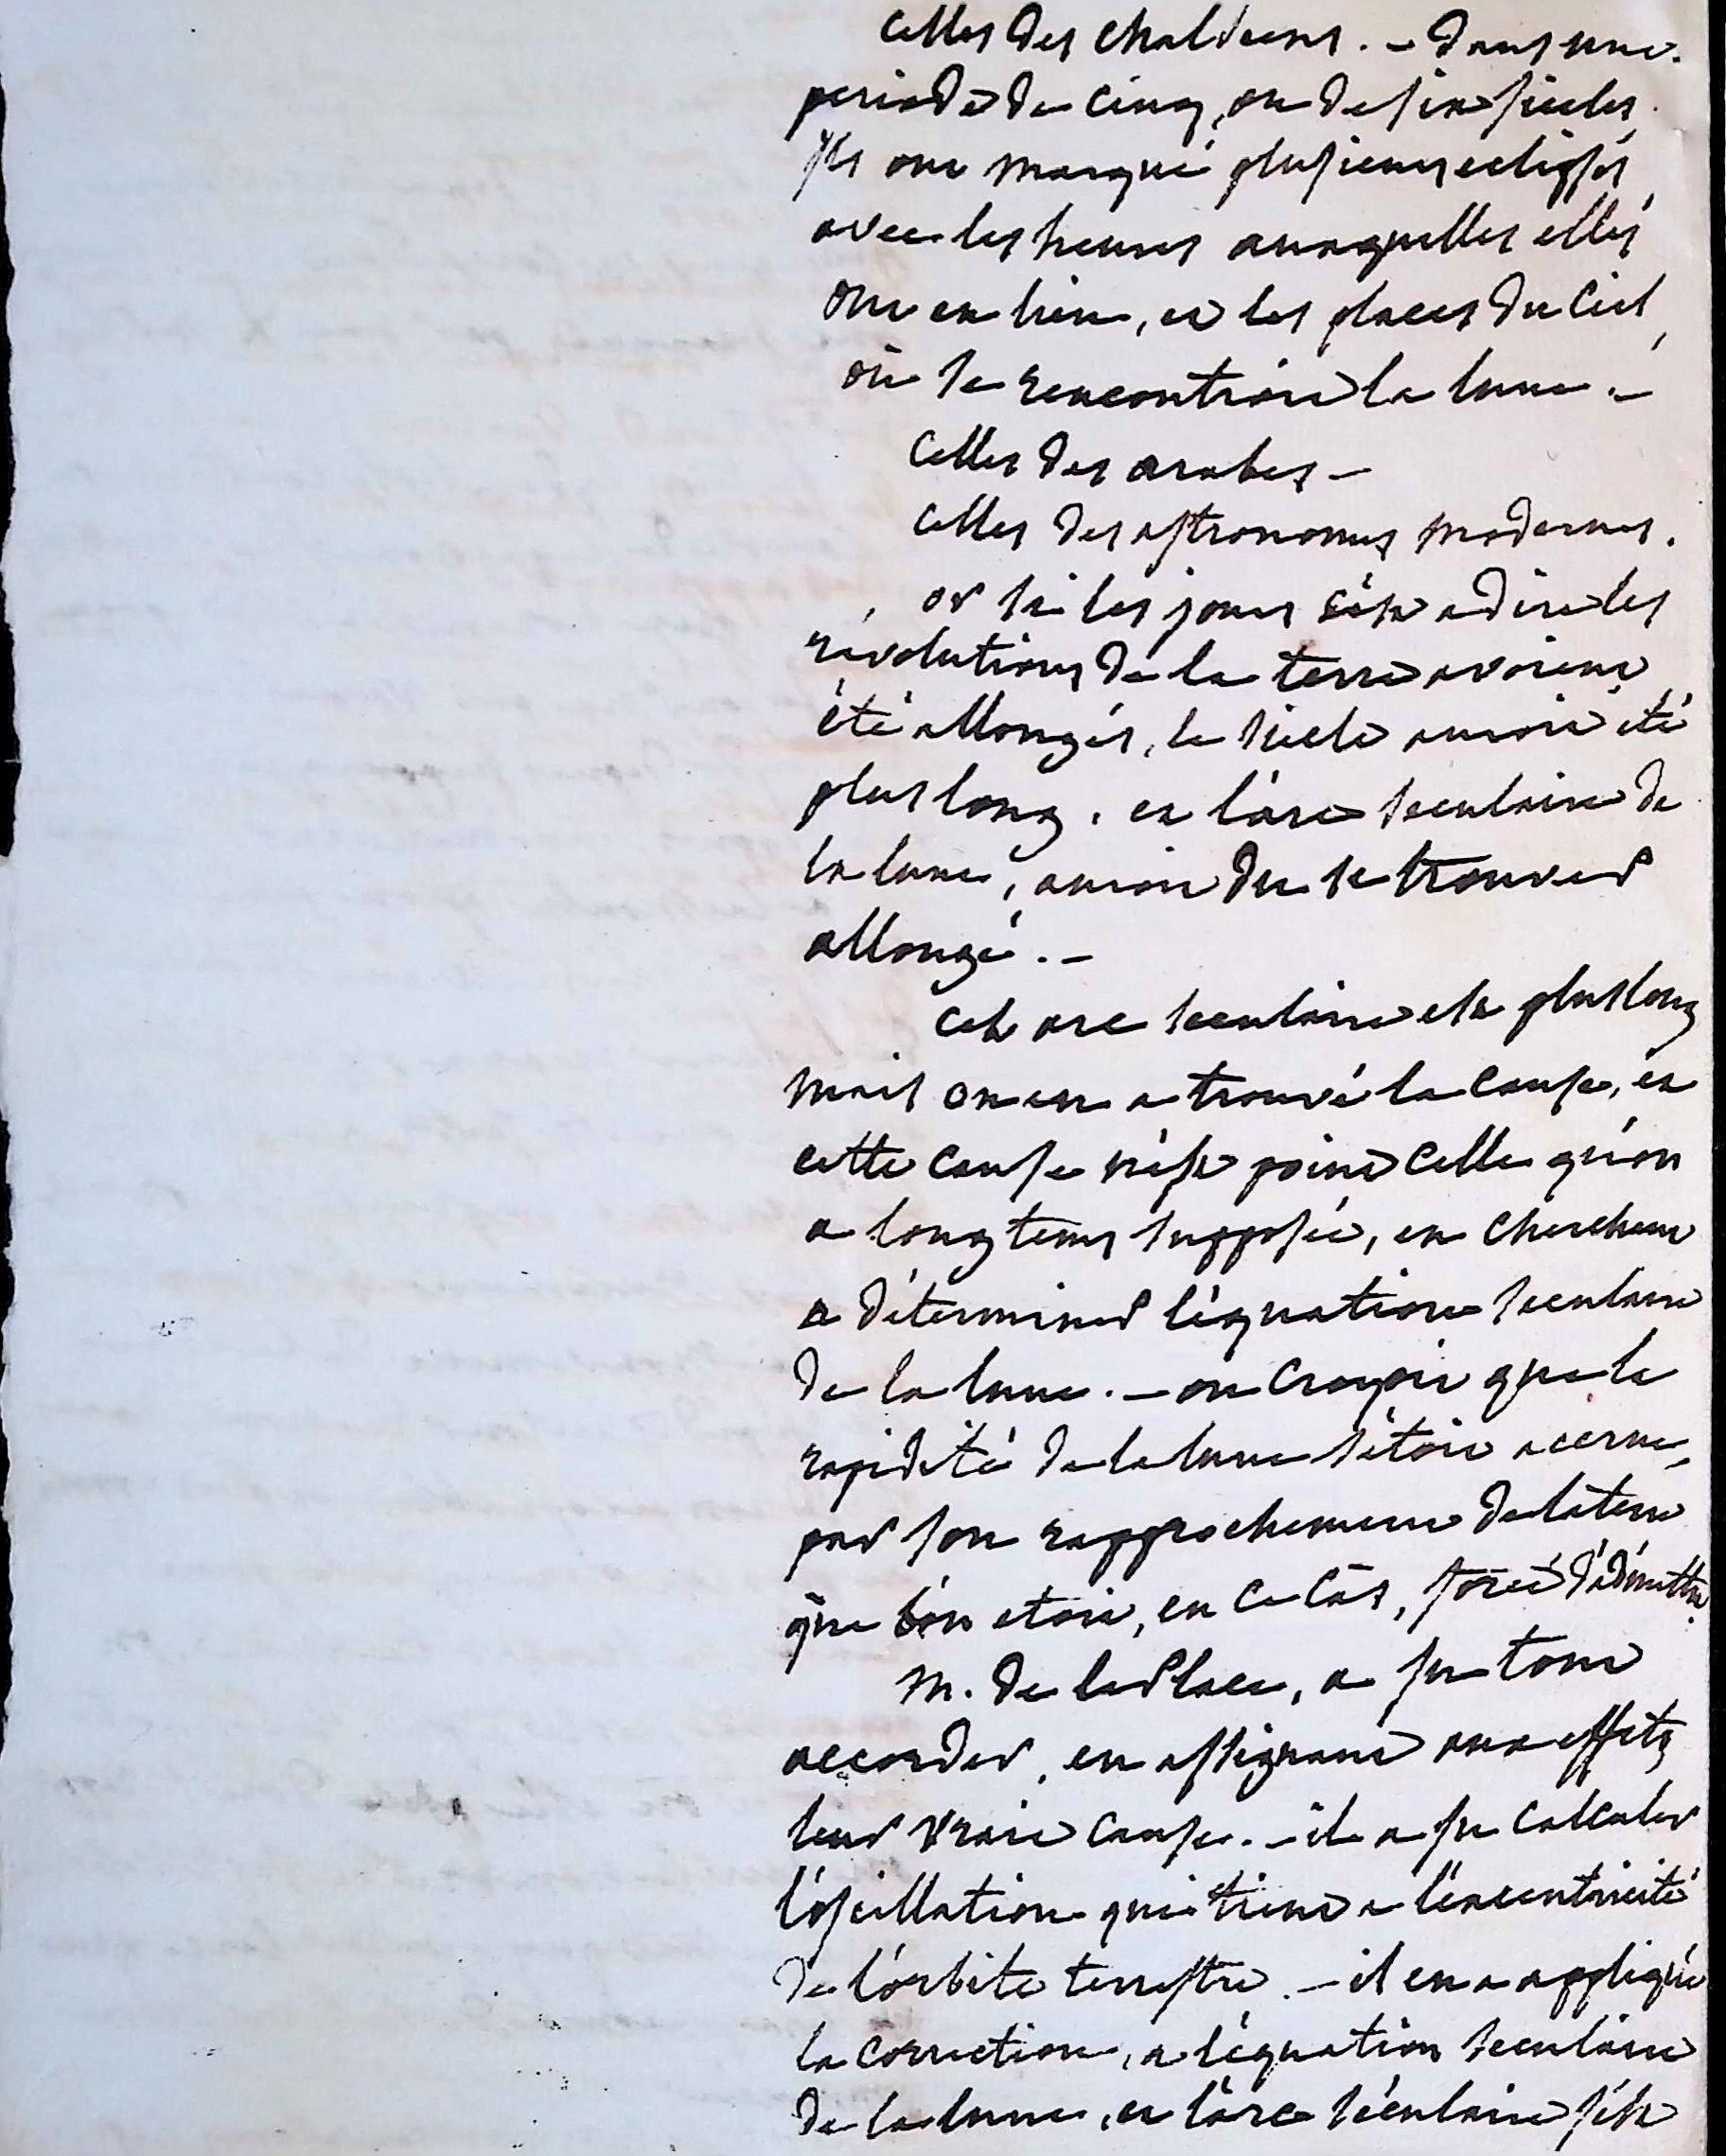 celles des chaldéens. – dans une
periode de cinq, ou de six siecles,
ils ont marqué plusieurs eclipses,
avec les heures auxquelles elles
ont eu lieu, et les places du Ciel,
où se rencontroit la lune. –
Celles des arabes –
celles des astronomes modernes.
or si les jours c'est a dire les
révolutions de la terre avoient
été allongés, le siecle auroit été
plus long. et l'arc seculaire de
la lune, auroit du se trouver
allongé. –
Cet arc seculaire est plus long
mais on en a trouvé la cause, et
cette cause n'est point celle qu'on
a longtems supposée, en cherchant
a déterminer l'équation seculaire
de la lune. – on croyoit que la
rapidité de la lune s'étoit accrue,
par son rapprochement de la terre
que l'on etoit, en ce cas, forcé d'admettre.
M. de la Place, a su tout
accorder, en assignant aux effets
leur vraie cause. – il a su calculer
l'oscillation qui tient a l'excentricité
de l'orbite terrestre. – il en a appliqué
la correction, a l'équation seculaire
de la lune, et l'arc séculaire s'est